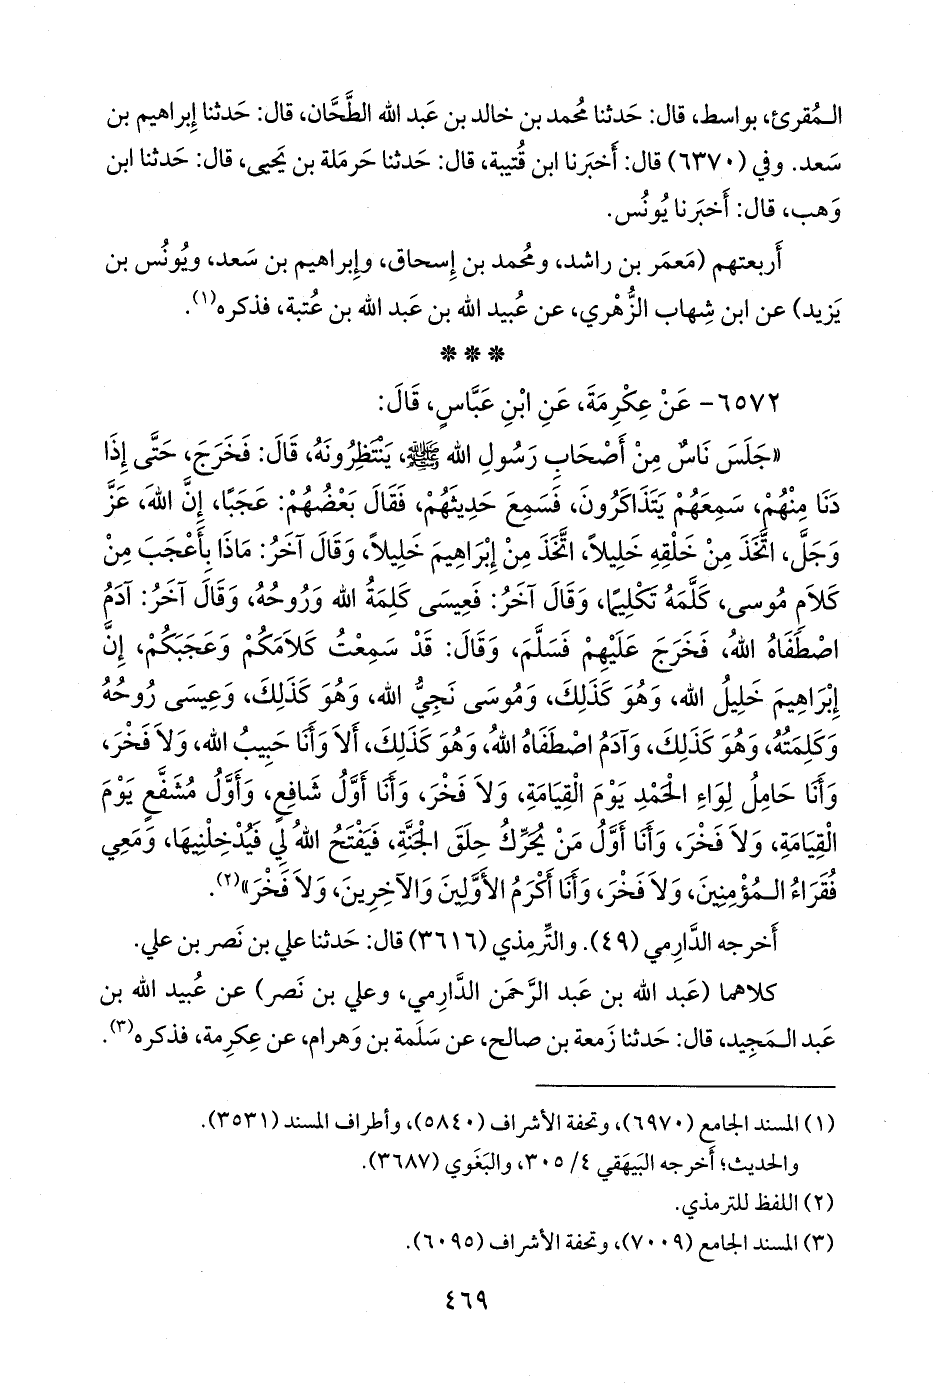 المُقرئ، بواسط، قال: حَدثنا مُحمد بن خالد بن عَبد الله الطَّحَّان، قال: حَدثنا إبراهيم بن
سَعد. وفي (٦٣٧٠) قال: أَخبَرنا ابن قُتيبة، قال: حَدثنا حَرمَلة بن يَحيى، قال: حَدثنا ابن
وَهب، قال: أَخبَرنا يُونُس.
أَربعتهم (مَعمَر بن راشد، ومُحمد بن إسحاق، وإبراهيم بن سَعد، ويُونُس بن
يَزيد) عن ابن شِهاب الزُّهْري، عن عُبيد الله بن عَبد الله بن عُتبة، فذكره(١).
***
٦٥٧٢- عَنْ عِكْرِمَةَ، عَنِ ابْنِ عَبَّاسٍ، قَالَ:
«جَلَسَ نَاسٌ مِنْ أَصْحَابِ رَسُولِ الله ﷺ، يَنْتَظِرُونَهُ، قَالَ: فَخَرَجَ، حَتَّى إِذَا
دَنَا مِنْهُمْ، سَمِعَهُمْ يَتَذَاكَرُونَ، فَسَمِعَ حَدِيثَهُمْ، فَقَالَ بَعْضُهُمْ: عَجَبًا، إِنَّ اللهَ، عَزَّ
وَجَلَّ، اتَّخَذَ مِنْ خَلْقِهِ خَلِيلاً، اتَّخَذَ مِنْ إِبْرَاهِيمَ خَلِيلاً، وَقَالَ آخَرُ: مَاذَا بِأَعْجَبَ مِنْ
كَلاَمِ مُوسى، كَلَّمَهُ تَكْلِيمًا، وَقَالَ آخَرُ: فَعِيسَى كَلِمَةُ الله وَرُوحُهُ، وَقَالَ آخَرُ: آدَمُ
اصْطَفَاهُ اللهُ، فَخَرَجَ عَلَيْهِمْ فَسَلَّمَ، وَقَالَ: قَدْ سَمِعْتُ كَلاَمَكُمْ وَعَجَبَكُمْ، إِنَّ
إِبْرَاهِيمَ خَلِيلُ الله، وَهُوَ كَذَلِكَ، وَمُوسَى نَجِيُّ الله، وَهُوَ كَذَلِكَ، وَعِيسَى رُوحُهُ
وَكَلِمَتُهُ، وَهُوَ كَذَلِكَ، وَآدَمُ اصْطَفَاهُ اللهُ، وَهُوَ كَذَلِكَ، أَلاَ وَأَنَا حَبِيبُ الله، وَلاَ فَخْرَ،
وَأَنَا حَامِلُ لِوَاءِ الْحَمْدِ يَوْمَ الْقِيَامَةِ، وَلاَ فَخْرَ، وَأَنَا أَوَّلُ شَافِعٍ، وَأَوَّلُ مُشَفَّعٍ يَوْمَ
الْقِيَامَةِ، وَلاَ فَخْرَ، وَأَنَا أَوَّلُ مَنْ يُحَرِّكُ حِلَقَ الْجَنَّةِ، فَيَفْتَحُ اللهُ لِي فَيُدْخِلُنِيهَا، وَمَعِي
فُقَرَاءُ الـمُؤْمِنِينَ، وَلاَ فَخْرَ، وَأَنَا أَكْرَمُ الأَوَّلِينَ وَالآخِرِينَ، وَلاَ فَخْرَ»(٢).
أَخرجه الدَّارِمي (٤٩). والتِّرمِذي (٣٦١٦) قال: حَدثنا علي بن نَصر بن علي.
كلاهما (عَبد الله بن عَبد الرَّحمَن الدَّارِمي، وعلي بن نَصر) عن عُبيد الله بن
عَبد الـمَجِيد، قال: حَدثنا زَمعة بن صالح، عن سَلَمة بن وَهرام، عن عِكرِمة، فذكره(٣).
(١) المسند الجامع (٦٩٧٠)، وتحفة الأشراف (٥٨٤٠)، وأطراف المسند (٣٥٣١).
والحديث؛ أَخرجه البَيهَقي ٤/ ٣٠٥، والبَغَوي (٣٦٨٧).
(٢) اللفظ للترمذي.
(٣) المسند الجامع (٧٠٠٩)، وتحفة الأشراف (٦٠٩٥).
٤٦٩